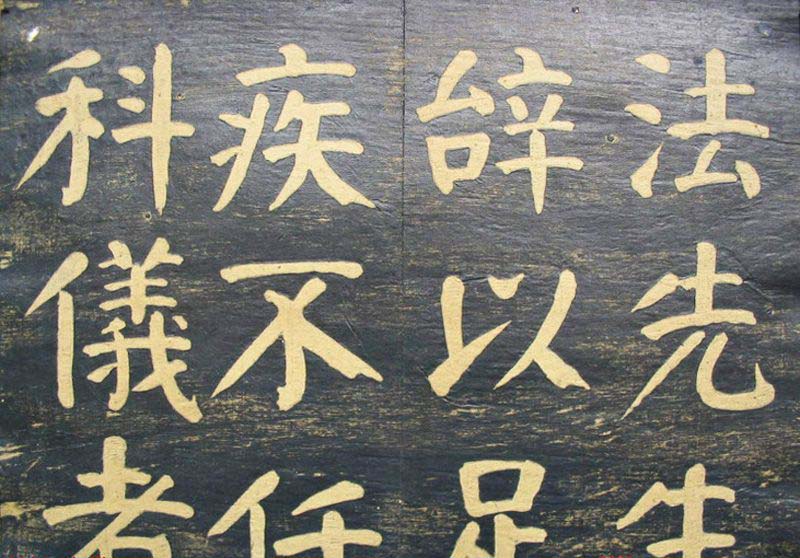 法先生
辝以足
疾不任
科儀者